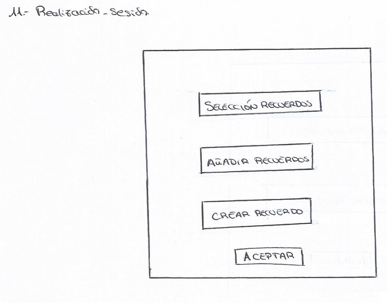 11- Realización_sesión
SELECCIÓN RECUERDOS
AÑADIR RECUERDOS
CREAR RECUERDO
ACEPTAR